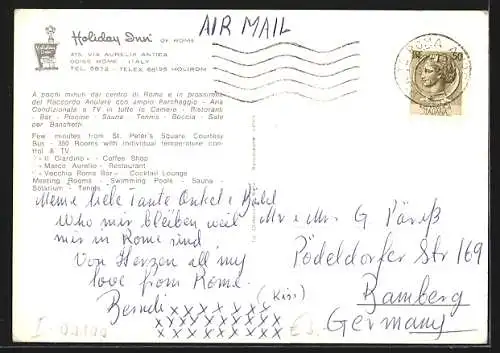 Holiday Inn® OF ROME
415, VIA AURELIA ANTICA
00165 ROME ITALY
TEL. 5872 - TELEX 68195 HOLIROM
AIR MAIL
ROMA
50
A pochi minuti dal centro di Roma e in prossimità
del Raccordo Anulare con ampio Parcheggio - Aria
Condizionata e TV in tutte le Camere - Ristoranti
- Bar - Piscine - Sauna - Tennis - Boccia - Sale
per Banchetti
Few minutes from St. Peter's Square Courtesy
Bus - 350 Rooms with individual temperature con-
trol & TV
« Il Giardino » - Coffee Shop
« Marco Aurelio » Restaurant
« Vecchia Roma Bar » Cocktail Lounge
Meeting Rooms - Swimming Pools - Sauna -
Solarium - Tennis
Meine liebe Tante Onkel &
Who mir bleiben weil
mir in Rome sind
Von Herzen all my
love from Rome.
(Kisi)
xxxxxxxx
xxxxxxxx
Mr & Mrs G
Pödeldorfer Str 169
Bamberg
Germany